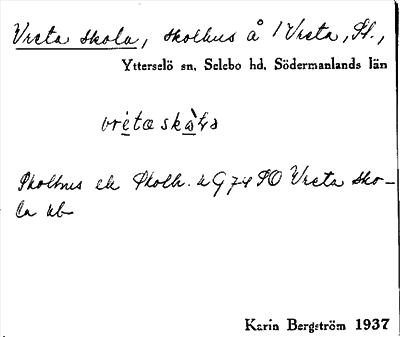 Vreta skola, skolhus å 1 Vreta, St.,
Ytterselö sn, Selebo hd, Södermanlands län
Skolhus ek Skolh. u G 74 SO Vreta sko-
la ub
Karin Bergström 1937